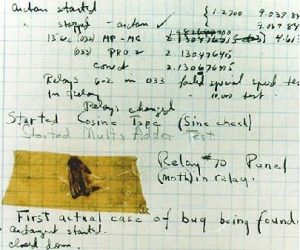 arctan started { 1.2700 9.037 84
" stopped - arctan ✓ 9.037 84
13"uc (032) MP-MC 2.130476415 4.61
(033) PRO 2 2.130476415
correct 2.130676415
Relays 6-2 in 033 failed special speed test
in relay 10.000 test
Relays changed
Started Cosine Tape (Sine check)
Started Multi Adder Test
Relay #70 Panel
(Moth) in relay.
First actual case of bug being found.
arctangent started.
closed down.